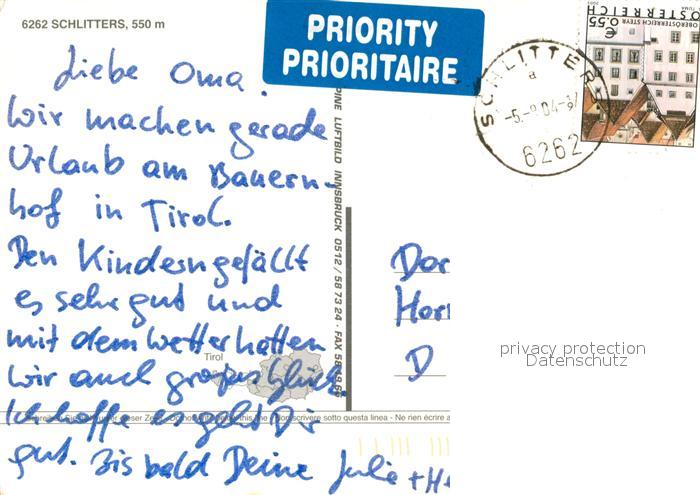 6262 SCHLITTERS, 550 m
PRIORITY
PRIORITAIRE
OBERÖSTERREICH STEYR
€ 0,55
ÖSTERREICH
SCHLITTER
a
-5.-8.04-
6262
Liebe Oma!
Wir machen gerade
Urlaub am Bauern-
hof in Tirol.
Den Kindern gefällt
es sehr gut und
mit dem Wetter hatten
wir auch großes Glück.
Ich hoffe es geht Dir
gut. Bis bald Deine Julia + H
PINE LUFTBILD INNSBRUCK 0512 / 58 73 24 · FAX 58
Tirol
scrivere sotto questa linea - Ne rien écrire a
Dor
Hor
D
privacy protection
Datenschutz